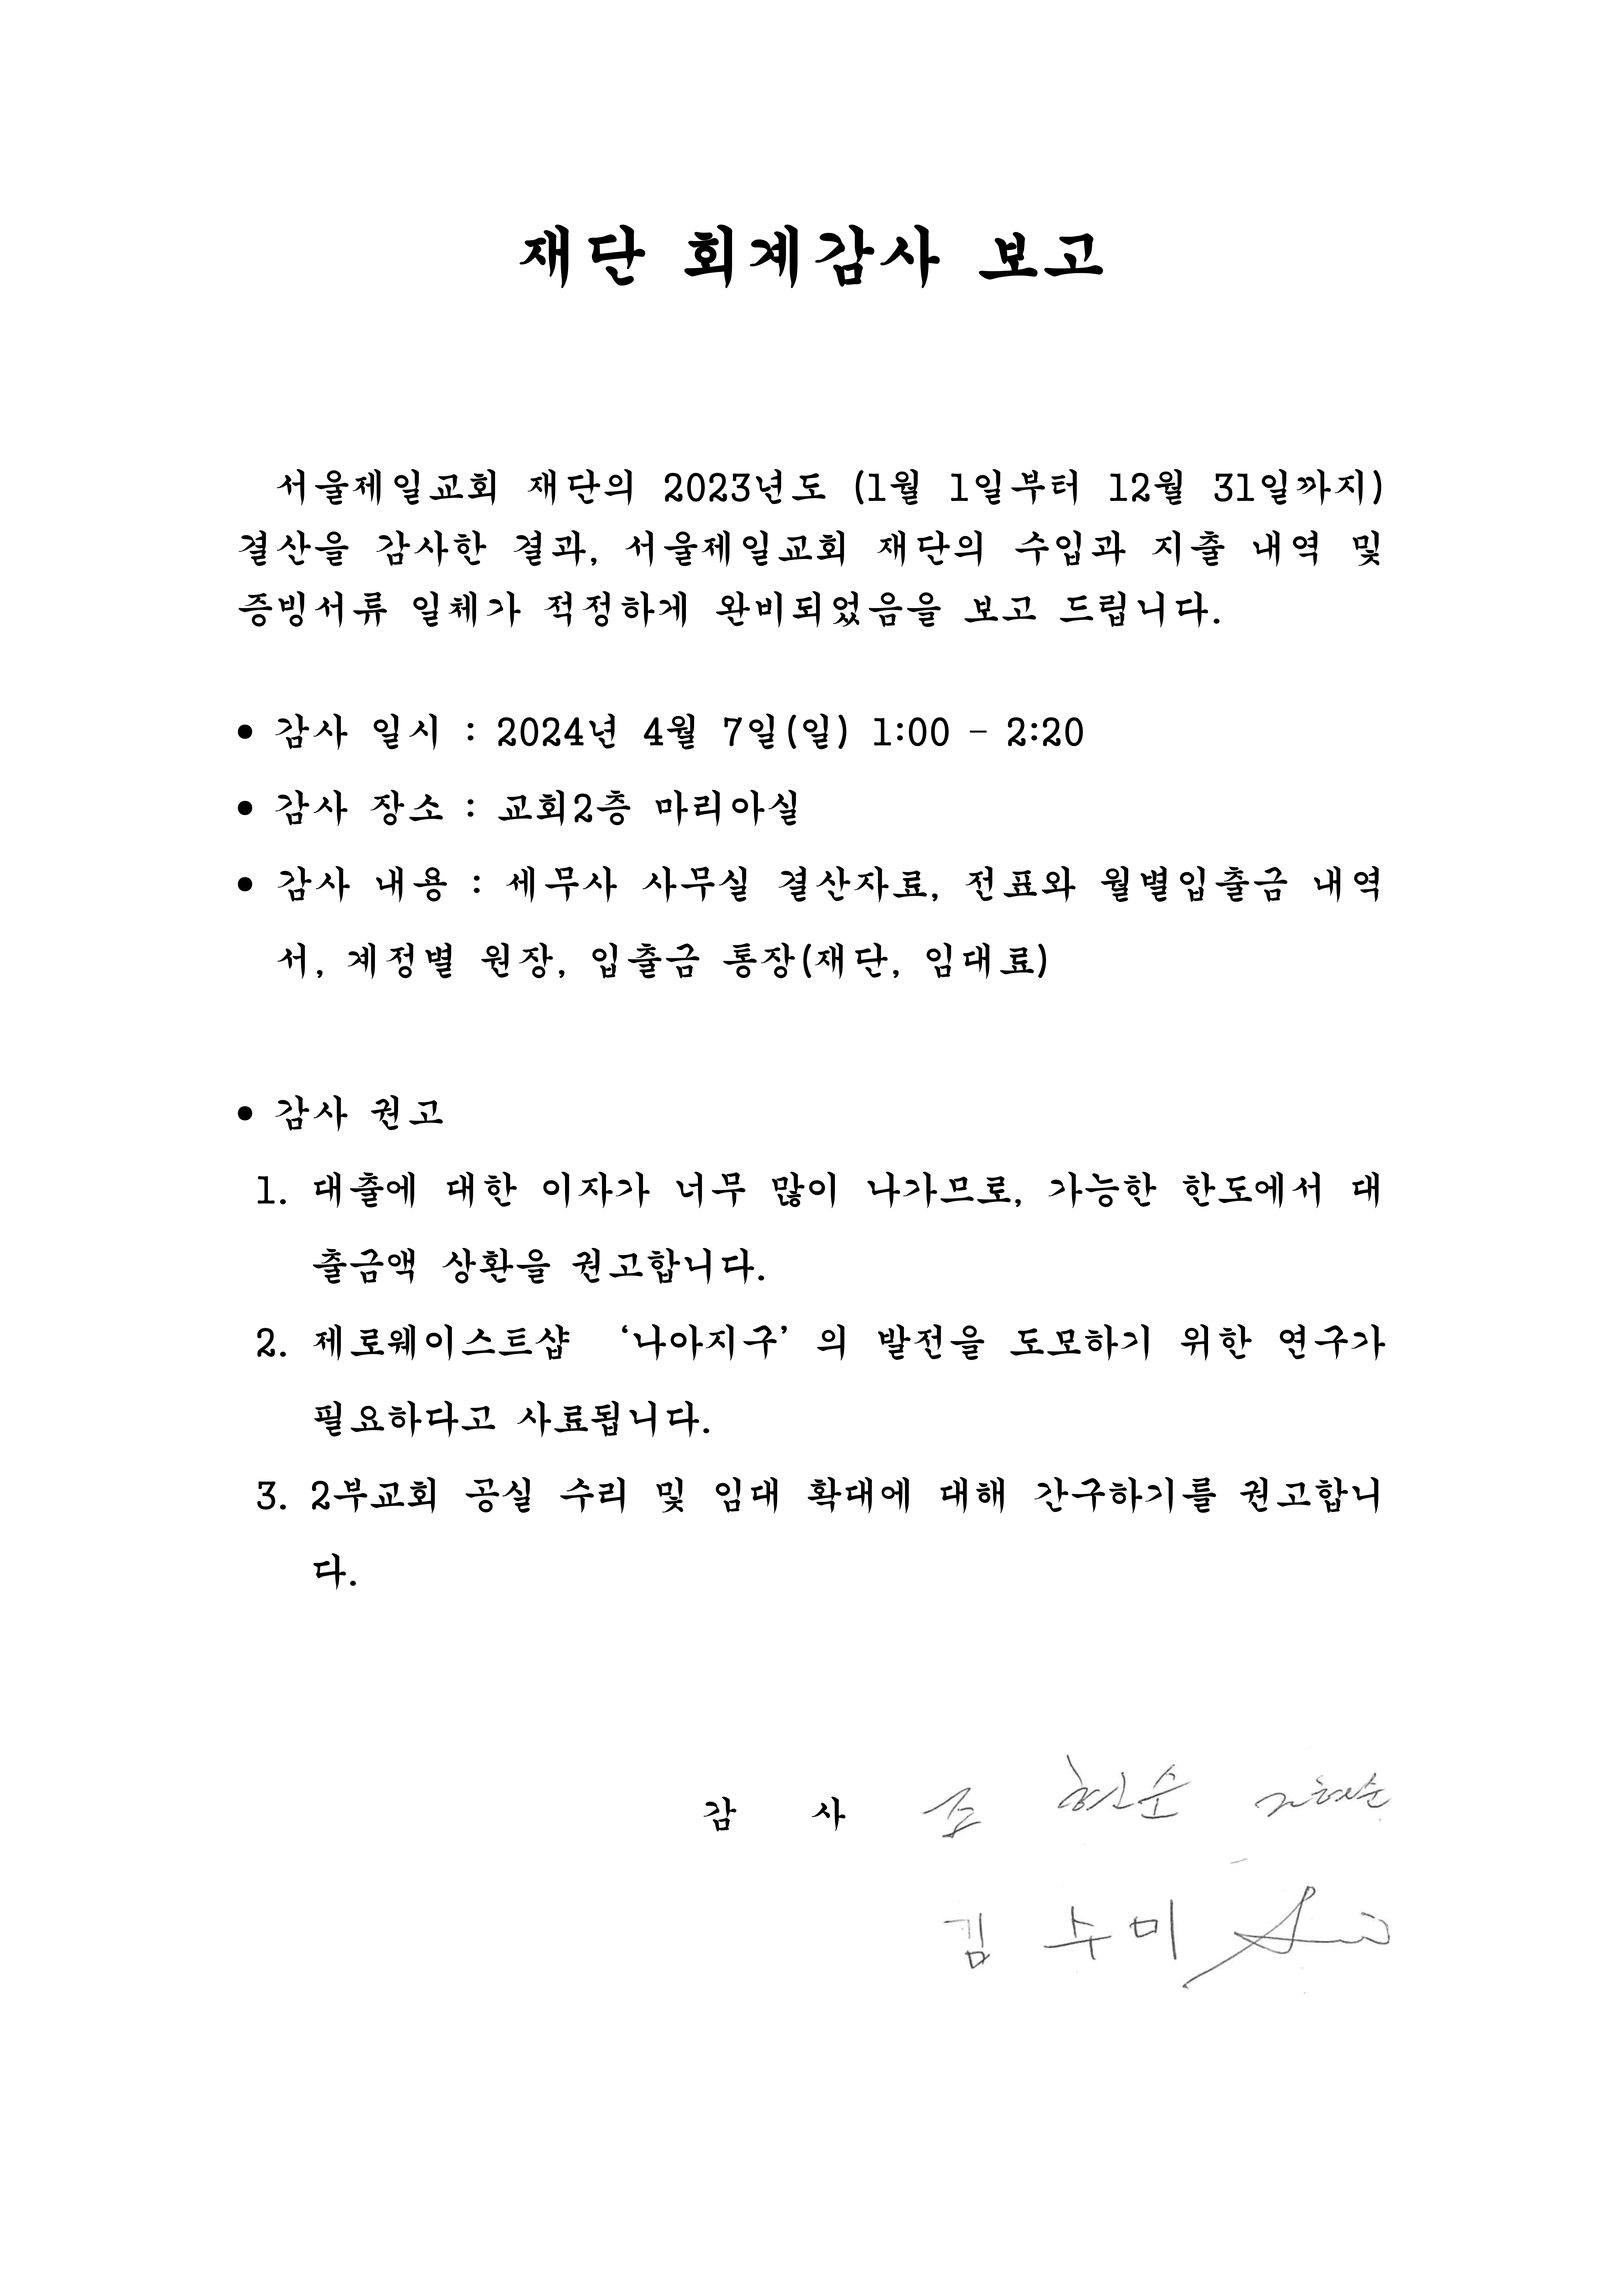 재단 회계감사 보고
서울제일교회 재단의 2023년도 (1월 1일부터 12월 31일까지)
결산을 감사한 결과, 서울제일교회 재단의 수입과 지출 내역 및
증빙서류 일체가 적정하게 완비되었음을 보고 드립니다.
● 감사 일시 : 2024년 4월 7일(일) 1:00 – 2:20
● 감사 장소 : 교회2층 마리아실
● 감사 내용 : 세무사 사무실 결산자료, 전표와 월별입출금 내역
서, 계정별 원장, 입출금 통장(재단, 임대료)
● 감사 권고
1. 대출에 대한 이자가 너무 많이 나가므로, 가능한 한도에서 대
출금액 상환을 권고합니다.
2. 제로웨이스트샵 ‘나아지구’의 발전을 도모하기 위한 연구가
필요하다고 사료됩니다.
3. 2부교회 공실 수리 및 임대 확대에 대해 간구하기를 권고합니
다.
감 사 조 현순
김 수미